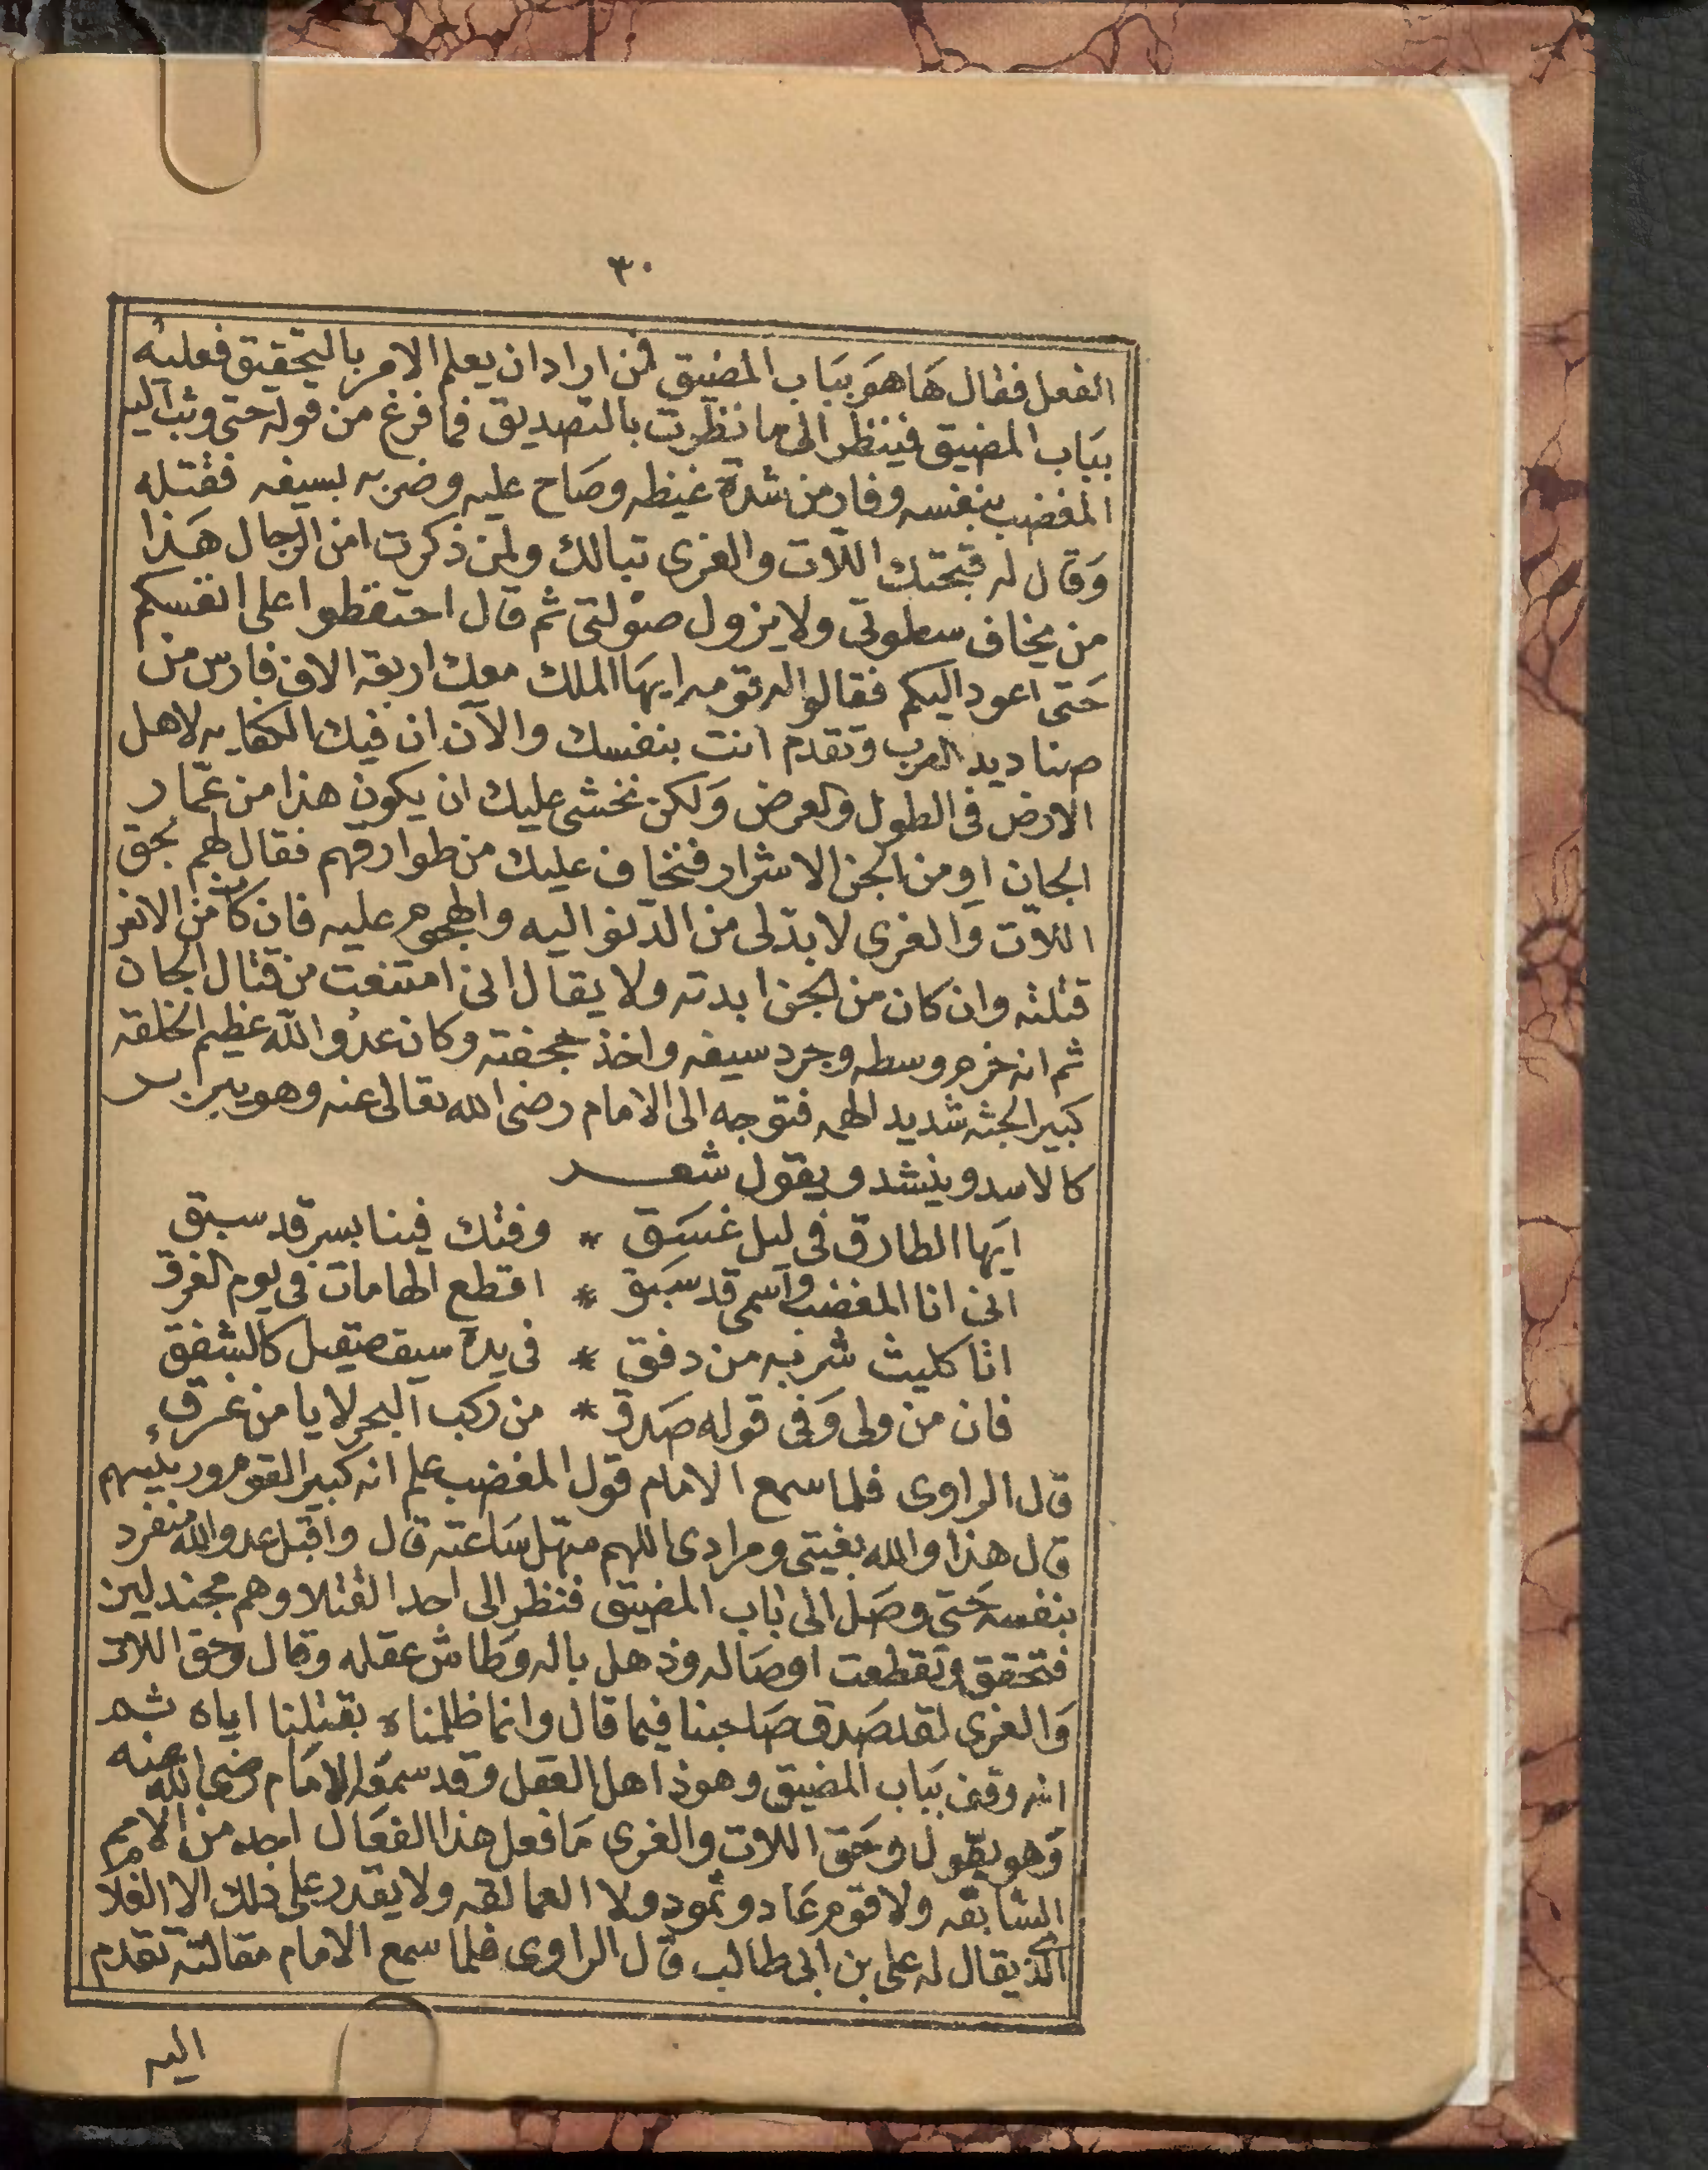 ٣٠
الفعل فقال هَا هوَ ببَاب المضيق فمن اراد ان يعلم الامر بالتحقيق فعليه
ببَاب المضيق فينظر الى ما نظرت بالتصديق فما فرغ من قوله حتى وثب اليه
المغضب بنفسه وفار من شدة غيظه وصَاح عليه وضربه بسيفه فقتله
وَقال له قبحتك اللات والعزى تبالك ولمن ذكرت امن الرجال هَذا
من يخاف سطوتى ولا يزول صوْلتى ثم قال احتفظوا على انفسكم
حَتى اعود اليكم فقالوا له قومه ايهَا الملك معك اربعة الاف فارس من
صناديد العرب وتقدم انت بنفسك والآن ان فيك الكفايه لاهل
الارض فى الطول والعرض وَلكن نخشى عليك ان يكون هذا من عمّار
الجان او من الجن الاشرار فنخاف عليك من طوارقهم فقال لهم بحق
اللات وَالعزى لا بدّ لى من الدنو اليه والهجوم عليه فان كان من الانس
قتلته وان كان من الجن ابدته ولا يقال انى امتنعت من قتال الجان
ثم انه خرم وسطه وجرد سيفه واخذ حجفته وكان عدُو الله عظيم الخلقه
كبير الجثه شديد الهمه فتوجه الى الامام رضى الله تعالى عنه وهو يبربر
كالاسد وينشد ويقول شعـــر
ايهَا الطارق فى ليل غسَق * وفتك فينا بسر قد سبق
انى انا المغضب واسمى قد سبَق * اقطع الهامات فى يوم الفرق
انا كليث شربه من دفق * فى يدهَ سيف صيقل كالشفق
فان من ولى وَفى قوله صَدق * من ركب البحر لا يامن غرق
قال الراوى فلما سمع الامام قول المغضب علم انه كبير القوم ورييسهم
قال هذا والله بغيتى ومرادى اللهم سهّل سَاعته قال واقبل عدو الله منفرد
بنفسه حَتى وصَل الى بَاب المضيق فنظر الى احد القتلا وهم مجندلين
فتحقق وتقطعت اوصَاله وذهل باله وَطاش عقله وقال وحق اللات
وَالعزى لقد صَدق صَاحبنا فيما قال وانما ظلمناه بقتلنا اياه ثم
انه وقف ببَاب المضيق وهو ذاهل العقل وقد سمعَه الامَام رضى الله عنه
وَهو يقول وحَق اللات والعزى مَا فعل هذا الفعَال احد من الامم
السَابقه ولا قوم عَاد وثمود ولا العمالقه ولا يقدر على ذلك الا الغلام
الذى يقال له على بن ابى طالب قال الراوى فلما سمع الامام مقالته تقدم
اليه